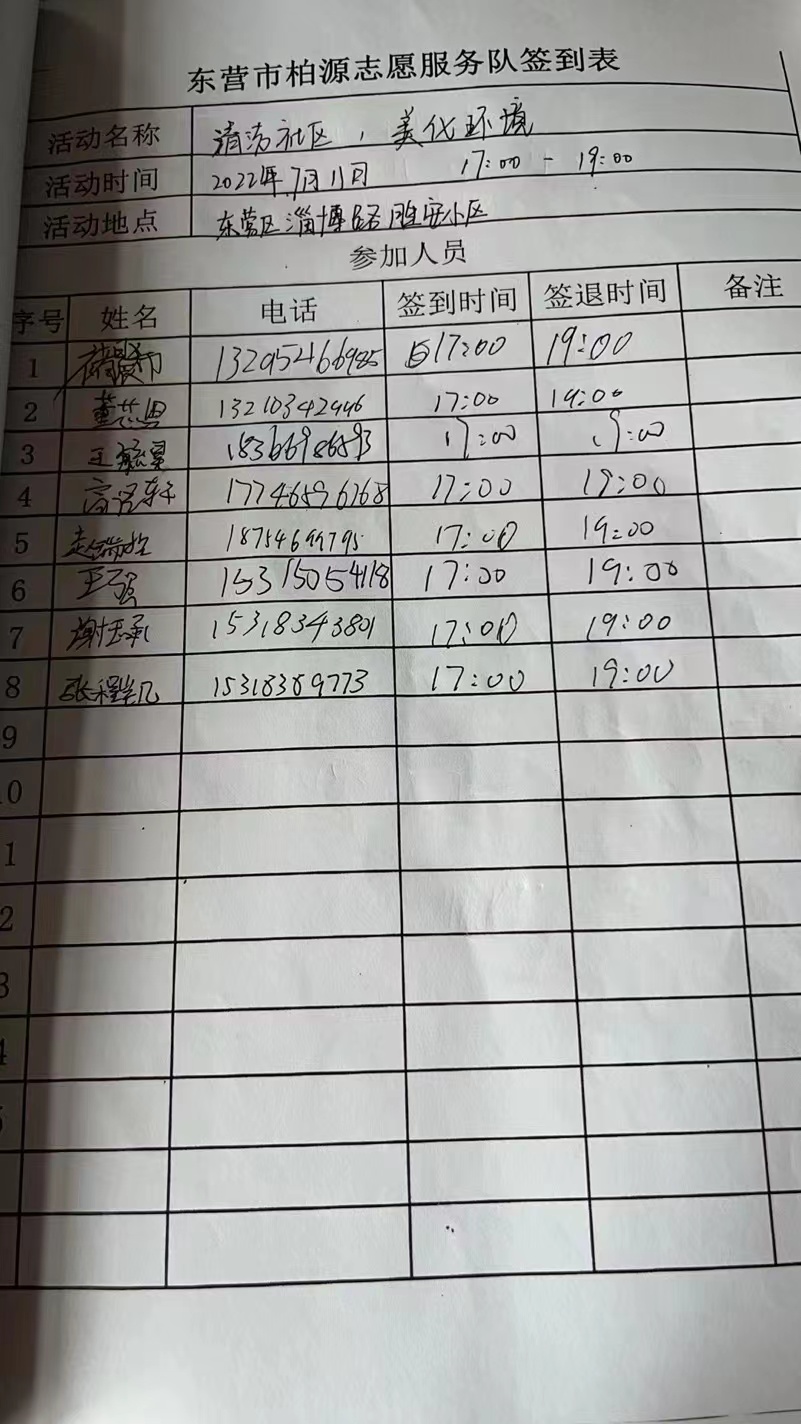 东营市柏源志愿服务队签到表
活动名称 清洁社区，美化环境
活动时间 2022年7月11日 17:00 - 19:00
活动地点 东营区淄博路胜安小区
参加人员
序号 姓名 电话 签到时间 签退时间 备注
1 13295466985 17:00 19:00
2 董芯思 13210342446 17:00 19:00
3 王毓昊 18366986893 17:00 19:00
4 17746896768 17:00 19:00
5 18754699795 17:00 19:00
6 王强 15315054118 17:00 19:00
7 谢玉承 15318343801 17:00 19:00
8 15318389773 17:00 19:00
9
0
1
2
3
4
5